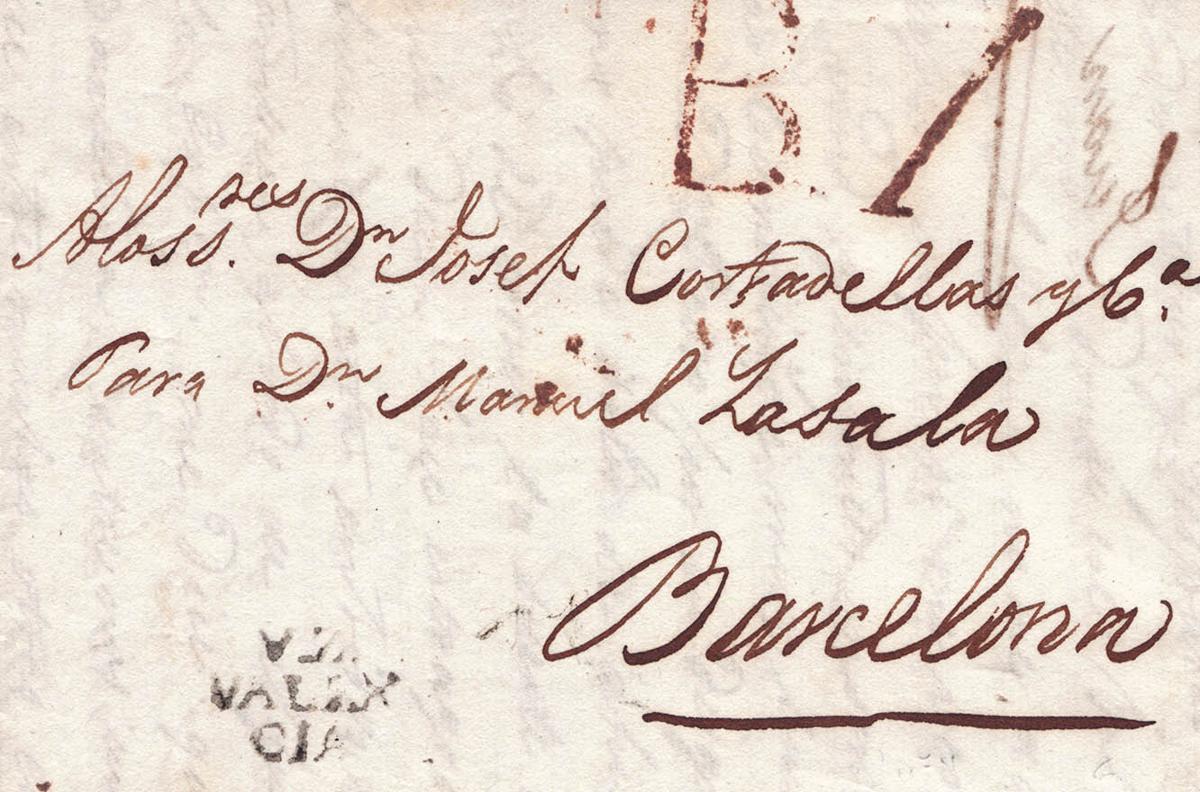 B 1
A los S.res Dn Josef Cortadellas y Ca.
Para Dn. Manuel Lasala
Barcelona
VALEN
CIA